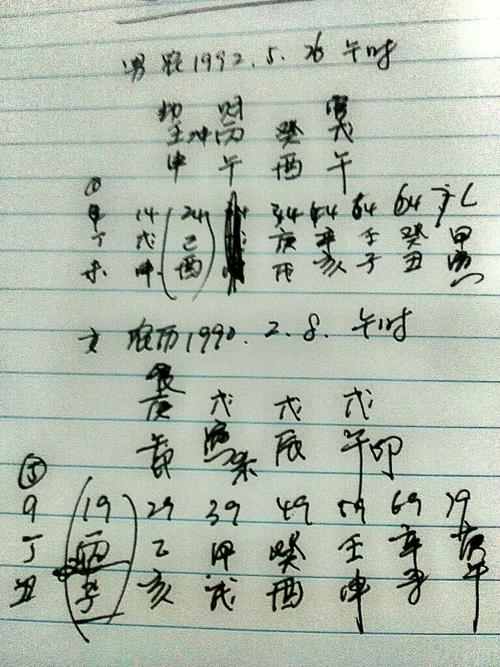 男 农1992.5.26 午时
劫 财 官
壬冲丙 癸 戊
申 午 酉 午
14 24 34 44 54 64
甲 戊 己 庚 辛 壬 癸 甲
丁 申 酉 戌 亥 子 丑
未
女 农历1990.2.8. 午时
食
庚 戊 戊 戊
午 寅 辰 午印
9 19 29 39 49 59 69 79
丁 丙 乙 甲 癸 壬 辛 庚
丑 子 亥 戌 酉 申 未 午